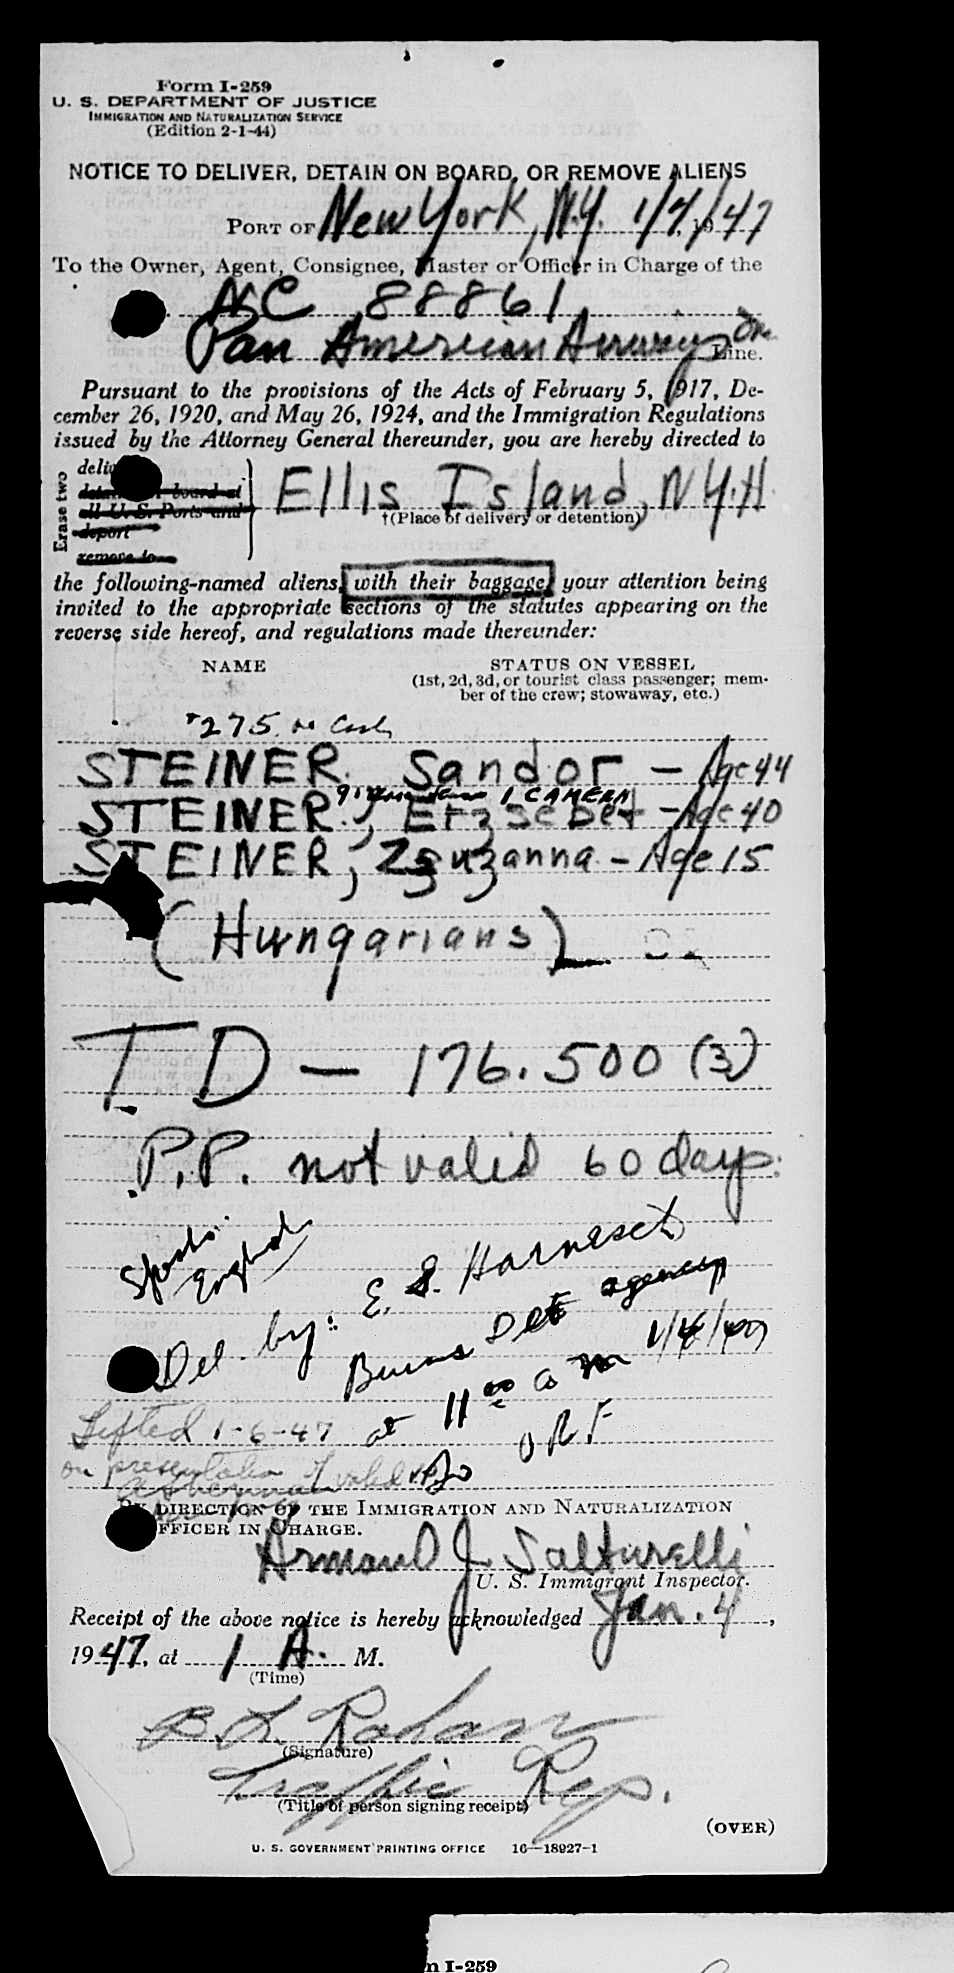 Form I-259
U. S. DEPARTMENT OF JUSTICE
IMMIGRATION AND NATURALIZATION SERVICE
(Edition 2-1-44)
NOTICE TO DELIVER, DETAIN ON BOARD, OR REMOVE ALIENS
PORT OF New York, N.Y. 1/4/1947
To the Owner, Agent, Consignee, Master or Officer in Charge of the
NC 88861
Pan American Airways Line.
Pursuant to the provisions of the Acts of February 5, 1917, De-
cember 26, 1920, and May 26, 1924, and the Immigration Regulations
issued by the Attorney General thereunder, you are hereby directed to
Erase two
deliv
detain on board at
all U. S. Ports and
deport
remove to
Ellis Island, N.Y.H
†(Place of delivery or detention)
the following-named aliens, with their baggage, your attention being
invited to the appropriate sections of the statutes appearing on the
reverse side hereof, and regulations made thereunder:
NAME
STATUS ON VESSEL
(1st, 2d, 3d, or tourist class passenger; mem-
ber of the crew; stowaway, etc.)
$275. in Cash
STEINER, Sandor - Age 44
1 CAMERA
STEINER, Erzsebet - Age 40
STEINER, Zsuzanna - Age 15
(Hungarians)
T.D - 176.500 (3)
P.P. not valid 60 days.
Speaks
English
Del. by: E. S. Harnesch
Burns Det agency
at 11 00 a m 1/4/47
Lifted 1-6-47
on presentation of valid
BY DIRECTION OF THE IMMIGRATION AND NATURALIZATION
OFFICER IN CHARGE.
Armand J. Salturelli
U. S. Immigrant Inspector.
Receipt of the above notice is hereby acknowledged Jan. 4,
1947, at 1 A. M.
(Time)
B. L. Rohan
(Signature)
Traffic Rep.
(Title of person signing receipt)
(OVER)
U. S. GOVERNMENT PRINTING OFFICE 16—18927-1
m I-259